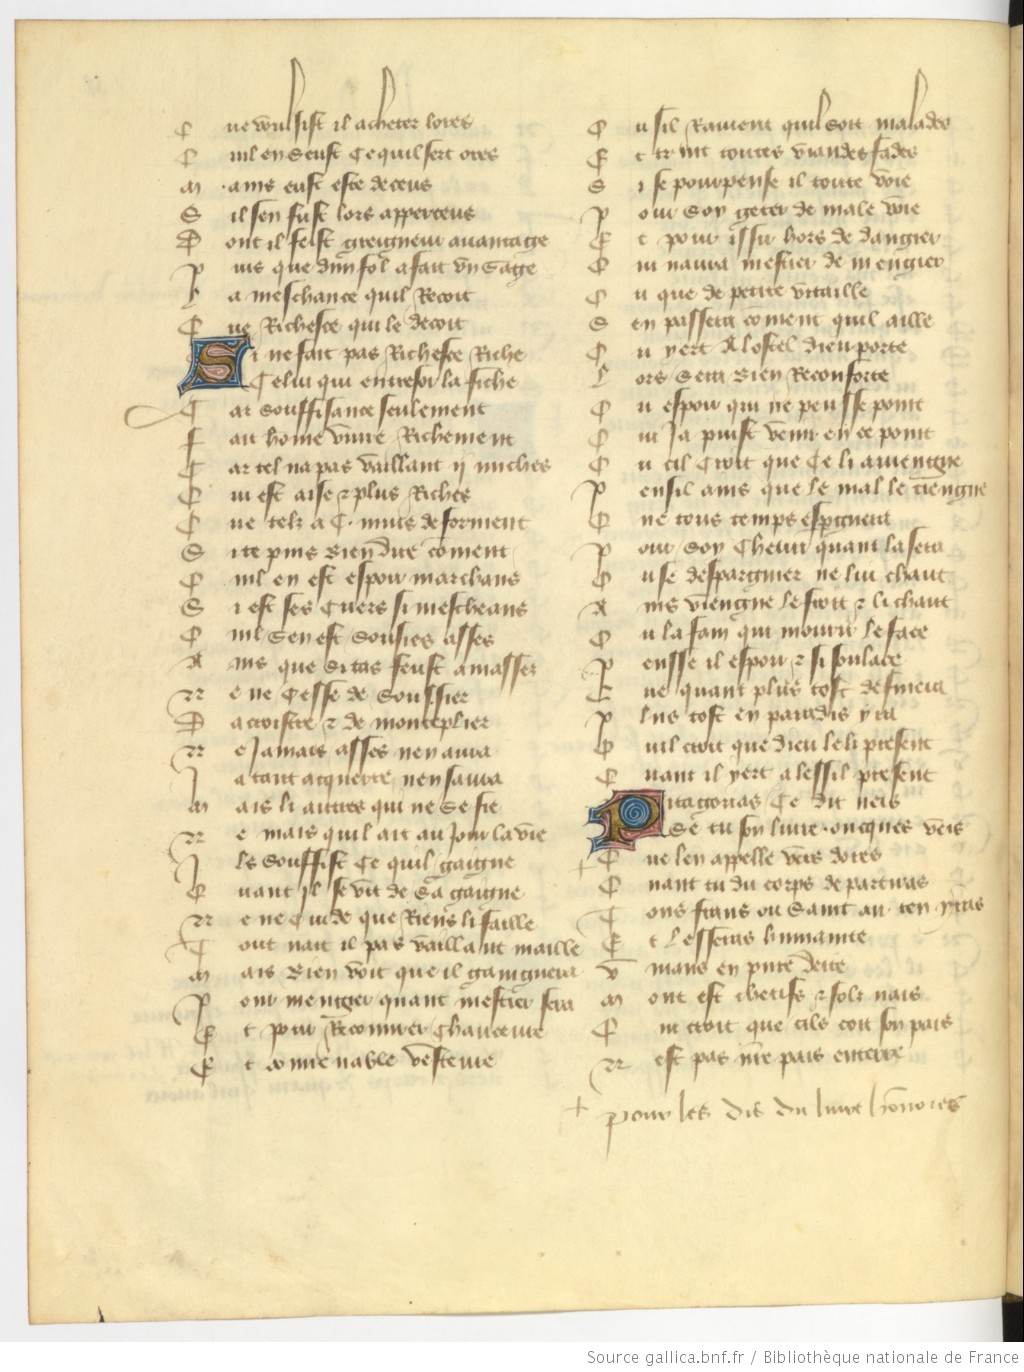 Que voulsist il acheter lores
Quil en seust ce quil sert ores
Mains eust este deceus
Sil sen fust lors apperceus
Dont il feist greigneur auantage
Puis que dun fol a fait vn sage
La meschance quil Recoit
Que Richesce qui le decoit
Si ne fait pas Richesce Riche
Celui qui en tresor la fiche
Car souffisance seulement
Fait home viure Richement
Car tel na pas vaillant ij miches
Qui est aise ⁊ plus Riches
Que telz a C. muis de forment
Si te puis bien dire coment
Quil en est espoir marchans
Si est ses cuers si mescheans
Quil sen est soussies asses
Ains que si tas feust amasser
Ne ne cesse de soussier
Dacroistre ⁊ de monteplier
Ne Jamais asses nen aura
Ja tant acquerre nen saura
Mais li autres qui ne se fie
Ne mais quil ait au Jour la vie
Il souffist ce quil gaigne
Quant Il se vit de sa gaigne
Ne ne cuide que Riens li faille
Tout nait il pas vaillant maille
Mais bien voit que il gaaignera
Pour mengier quant mestier sera
Et pour Recouurer chaucure
Et conuenable vesteure
Ou sil Rauient quil soit malades
Et truit toutes viandes fades
Si se pourpense il toute voie
Pour soy geter de male voie
Et pour issir hors de dangier
Quil naura mestier de mengier
Ou que de petite vitaille
Sen passera coment quil aille
Ou yert A lostel dieu porte
Lors sera bien Reconforte
Ou espoir qui ne pensse point
Qui Ja puist venir en ce point
Ou cil croit que ce li auiengne
Pensil ains que le mal le tiengne
Que tous temps espergnera
Pour soy cheuir quant la sera
Ou se despargnier ne lui chaut
Ains viengne le froit ⁊ li chaut
Ou la fain qui mourir le face
Pensse il espoir ⁊ si soulace
Que quant plus tost definera
Plus tost en paradis yra
Quil croit que dieu le li present
Quant il yert a lessil present
Pitagoras ce dit neis
Se tu son liure oncques veis
Que len appelle vers dores
Quant tu du corps departiras
Tous frans ou saint air ten yras
Et lesseras humanite
Viuans en pure deite
Mont est chetifs ⁊ folz nais
Qui croit que cils soit son pais
Nest pas nostre pais en terre
+ pour les dis du liure honnores
Source gallica.bnf.fr / Bibliothèque nationale de France